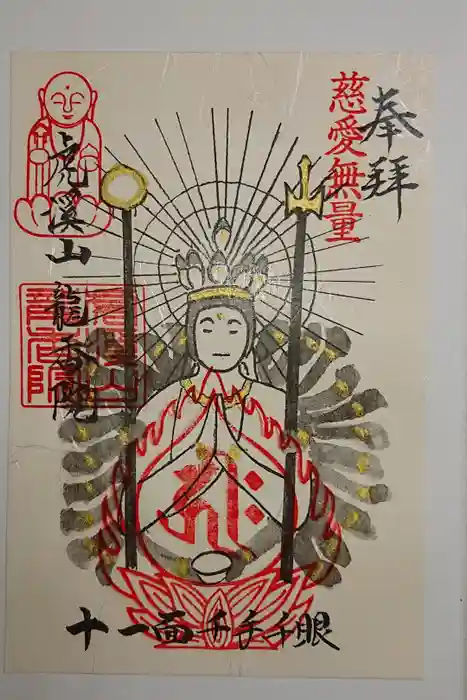 奉拝
慈愛無量
十一面千手千眼
虎溪山
龍香院
𑖮𑖿𑖨𑖱𑖾